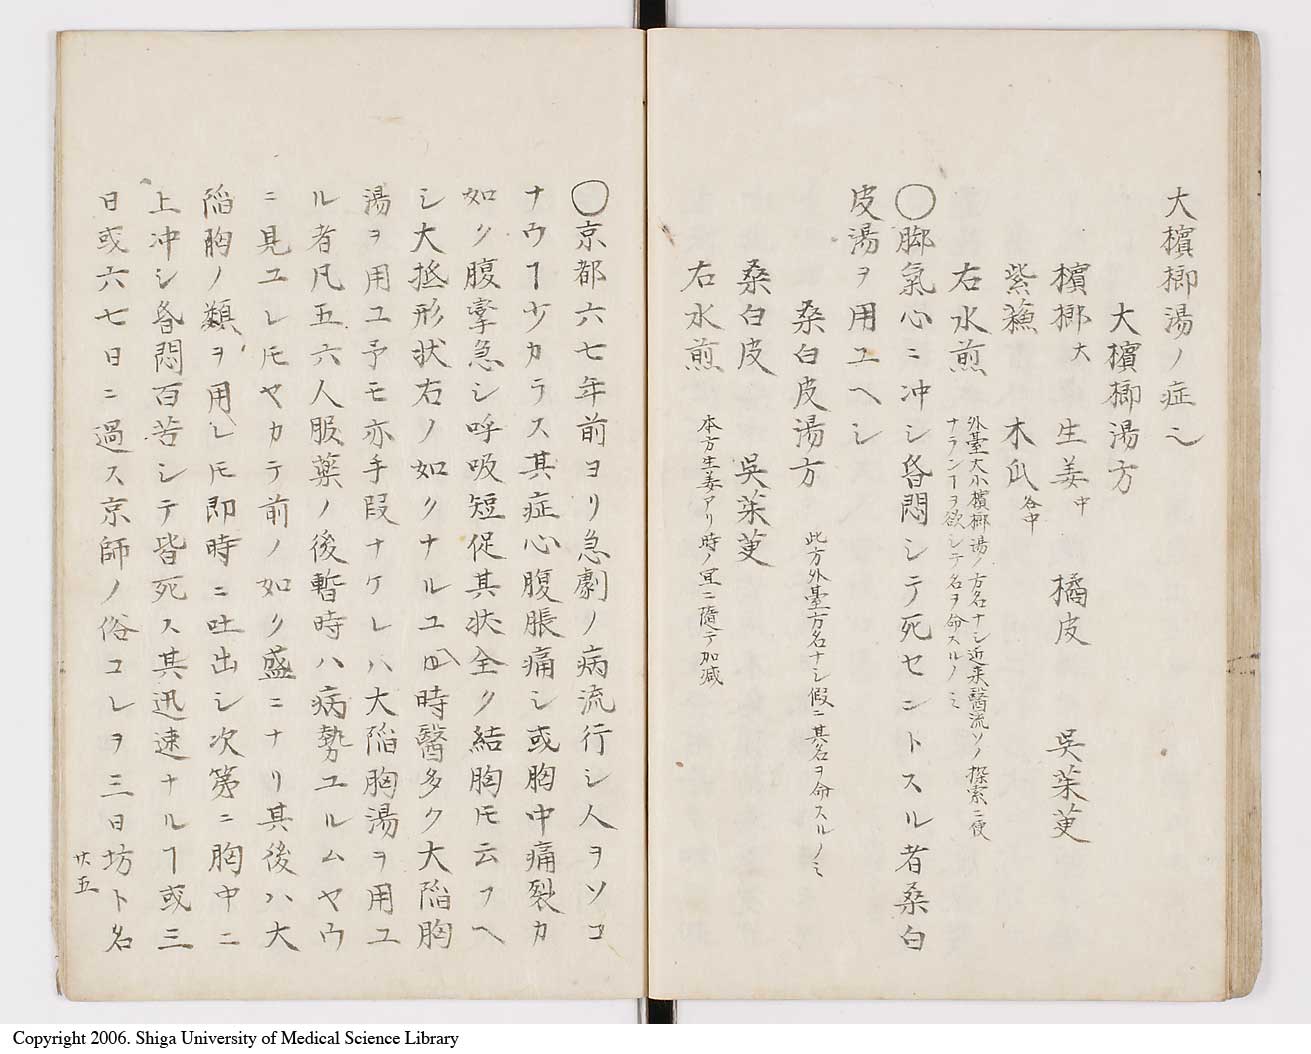 大檳榔湯ノ症也
大檳榔湯方
檳榔大 生姜中 橘皮 呉茱萸
紫蘓 木瓜各中
右水煎 外臺大小檳榔湯ノ方名ナシ近来醫流ソノ探索ニ便
ナランヿヲ欲シテ名ヲ命スルノミ
〇脚氣心ニ冲シ昏悶シテ死セントスル者桑白
皮湯ヲ用ユヘシ
桑白皮湯方 此方外臺方名ナシ假ニ其名ヲ命スルノミ
桑白皮 呉茱萸
右水煎 本方生姜アリ時ノ冝ニ隨テ加减
〇京都六七年前ヨリ急劇ノ病流行シ人ヲソコ
ナウヿ少カラス其症心腹脹痛シ或胸中痛裂カ
如ク腹攣急シ呼吸短促其状全ク結胸𪜈云フヘ
シ大抵形状右ノ如クナルユヘ時醫多ク大陥胸
湯ヲ用ユ予モ亦手叚ナケレハ大陥胸湯ヲ用ユ
ル者凡五六人服薬ノ後暫時ハ病勢ユルムヤウ
ニ見ユレ𪜈ヤカテ前ノ如ク盛ニナリ其後ハ大
陥胸ノ類ヲ用レ𪜈即時ニ吐出シ次第ニ胸中ニ
上冲シ昏悶百苦シテ皆死ス其迅速ナルヿ或三
日或六七日ニ過ス京師ノ俗コレヲ三日坊ト名
廿五
Copyright 2006. Shiga University of Medical Science Library